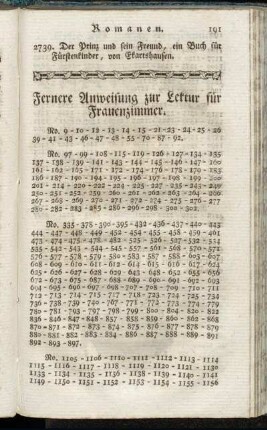 Romanen. 191
2739. Der Prinz und sein Freund, ein Buch für
Fürstenkinder, von Ekartshausen.
Fernere Anweisung zur Lektur für
Frauenzimmer.
No. 9 - 10 - 12 - 13 - 14 - 15 - 21 - 23 - 24 - 25 - 26
39 - 41 - 43 - 46 - 47 - 48 - 55 - 70 - 87 - 92.
No. 97 - 99 - 108 - 115 - 119 - 126 - 127 - 134 - 135
137 - 138 - 139 - 141 - 143 - 144 - 145 - 146 - 147 - 160
161 - 162 - 165 - 171 - 172 - 174 - 176 - 178 - 179 - 180 - 185
186 - 187 - 190 - 194 - 195 - 196 - 197 - 198 - 199 - 200
201 - 214 - 220 - 222 - 223 - 224 - 225 - 236 - 249 - 251
252 - 253 - 254 - 257 - 259 - 260 - 263 - 265 - 267 - 268
269 - 270 - 271 - 272 - 273 - 274 - 275 - 276 - 277
280 - 282 - 283 - 285 - 286 - 296 - 298 - 300 - 302.
No. 335 - 378 - 390 - 395 - 432 - 436 - 437 - 440 - 443
444 - 447 - 448 - 449 - 452 - 454 - 455 - 458 - 459 - 461
473 - 474 - 475 - 478 - 483 - 525 - 526 - 527 - 532 - 534
555 - 542 - 543 - 544 - 545 - 555 - 557 - 560 - 561 - 568
576 - 577 - 579 - 580 - 583 - 587 - 588 - 603 - 607
608 - 609 - 610 - 611 - 612 - 614 - 615 - 616 - 617 - 624
625 - 626 - 627 - 628 - 629 - 643 - 648 - 652 - 654 - 655
656 - 657 - 658 - 674 - 675 - 707 - 708 - 709 - 710 - 711
712 - 713 - 714 - 715 - 717 - 718 - 723 - 724 - 725 - 734
736 - 738 - 739 - 740 - 760 - 771 - 772 - 773 - 774 - 779
780 - 787 - 788 - 790 - 791 - 792 - 798 - 799 - 800 - 820
836 - 846 - 847 - 848 - 858 - 859 - 860 - 862 - 863 - 868
870 - 871 - 872 - 873 - 874 - 875 - 876 - 877 - 878 - 879
880 - 881 - 882 - 883 - 885 - 886 - 888 - 889 - 890 - 891
892 - 893 - 897.
No. 1105 - 1106 - 1110 - 1111 - 1112 - 1113 - 1114
1115 - 1116 - 1117 - 1118 - 1119 - 1120 - 1121 - 1130
1133 - 1134 - 1135 - 1136 - 1137 - 1138 - 1140 - 1141
1149 - 1150 - 1151 - 1152 - 1153 - 1154 - 1155 - 1156